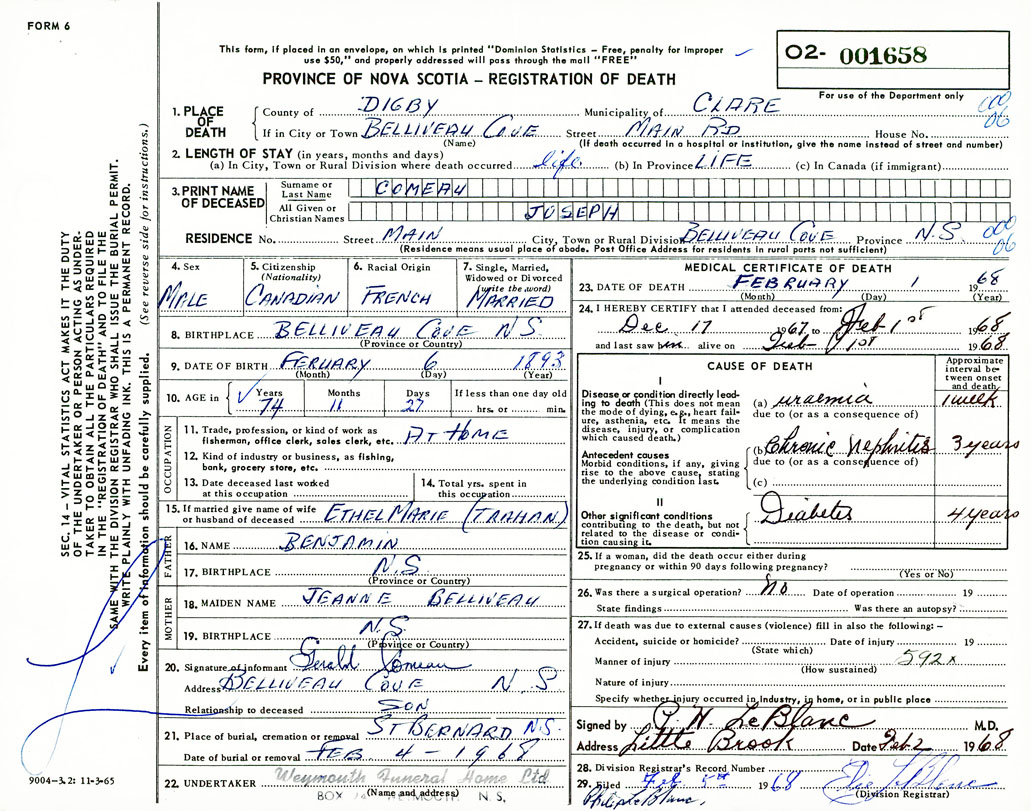 FORM 6
This form, if placed in an envelope, on which is printed "Dominion Statistics – Free, penalty for improper
use $50," and properly addressed will pass through the mail "FREE"
O2- 001658
PROVINCE OF NOVA SCOTIA – REGISTRATION OF DEATH
For use of the Department only
1. PLACE OF DEATH County of DIGBY Municipality of CLARE 000
If in City or Town BELLIVEAU COVE Street MAIN RD House No. 06
(Name) (If death occurred in a hospital or institution, give the name instead of street and number)
2. LENGTH OF STAY (in years, months and days)
(a) In City, Town or Rural Division where death occurred life (b) In Province LIFE (c) In Canada (if immigrant)
3. PRINT NAME OF DECEASED Surname or Last Name COMEAU
All Given or Christian Names JOSEPH
RESIDENCE No. Street MAIN City, Town or Rural Division BELLIVEAU COVE Province N.S 000
(Residence means usual place of abode. Post Office Address for residents in rural parts not sufficient) 06
SEC. 14 – VITAL STATISTICS ACT MAKES IT THE DUTY
OF THE UNDERTAKER OR PERSON ACTING AS UNDER-
TAKER TO OBTAIN ALL THE PARTICULARS REQUIRED
IN THE "REGISTRATION OF DEATH" AND TO FILE THE
SAME WITH THE DIVISION REGISTRAR WHO SHALL ISSUE THE BURIAL PERMIT.
WRITE PLAINLY WITH UNFADING INK. THIS IS A PERMANENT RECORD.
Every item of information should be carefully supplied. (See reverse side for instructions.)
4. Sex 5. Citizenship (Nationality) 6. Racial Origin 7. Single, Married, Widowed or Divorced (write the word)
MALE CANADIAN FRENCH MARRIED
8. BIRTHPLACE BELLIVEAU COVE N S.
(Province or Country)
9. DATE OF BIRTH FERUARY 6 1893
(Month) (Day) (Year)
10. AGE in Years Months Days If less than one day old
74 11 27 hrs. or min.
OCCUPATION
11. Trade, profession, or kind of work as
fisherman, office clerk, sales clerk, etc. AT HOME
12. Kind of industry or business, as fishing,
bank, grocery store, etc.
13. Date deceased last worked
at this occupation
14. Total yrs. spent in
this occupation
15. If married give name of wife
or husband of deceased ETHEL MARIE (TRAHAN)
FATHER
16. NAME BENJAMIN
17. BIRTHPLACE N.S
(Province or Country)
MOTHER
18. MAIDEN NAME JEANNE BELLIVEAU
19. BIRTHPLACE N.S
(Province or Country)
20. Signature of informant Gerald Comeau
Address BELLIVEAU COVE N.S
Relationship to deceased SON
21. Place of burial, cremation or removal ST BERNARD N.S.
Date of burial or removal FEB 4 – 1968
22. UNDERTAKER Weymouth Funeral Home Ltd.
(Name and address)
BOX WEYMOUTH N. S.
9004-3.2: 11-3-65
MEDICAL CERTIFICATE OF DEATH
23. DATE OF DEATH FEBRUARY 1 1968
(Month) (Day) (Year)
24. I HEREBY CERTIFY that I attended deceased from:
Dec. 17 1967 to Feb 1st 1968
and last saw him alive on Feb 1st 1968
CAUSE OF DEATH Approximate interval between onset and death
I
Disease or condition directly lead-
ing to death (This does not mean
the mode of dying, e.g., heart fail-
ure, asthenia, etc. It means the
disease, injury, or complication
which caused death.)
(a) uraemia 1 week
due to (or as a consequence of)
Antecedent causes
Morbid conditions, if any, giving
rise to the above cause, stating
the underlying condition last.
(b) Chronic Nephritis 3 years
due to (or as a consequence of)
(c)
II
Other significant conditions
contributing to the death, but not
related to the disease or condi-
tion causing it.
Diabetes 4 years
25. If a woman, did the death occur either during
pregnancy or within 90 days following pregnancy?
(Yes or No)
26. Was there a surgical operation? No Date of operation 19
State findings Was there an autopsy?
27. If death was due to external causes (violence) fill in also the following: –
Accident, suicide or homicide? Date of injury 19
(State which)
Manner of injury 592x
(How sustained)
Nature of injury
Specify whether injury occurred in industry, in home, or in public place
Signed by P. H. LeBlanc M.D.
Address Little Brook Date Feb. 2 1968
28. Division Registrar's Record Number
29. Filed Feb 5th 1968
(Division Registrar)